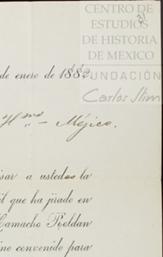 CENTRO DE
ESTUDIOS
DE HISTORIA
DE MEXICO
FUNDACIÓN
Carlos Slim
de enero de 1882
Hnos.— Méjico.
isar a ustedes la
il que ha jirado en
Camacho Roldan
ine convenido para